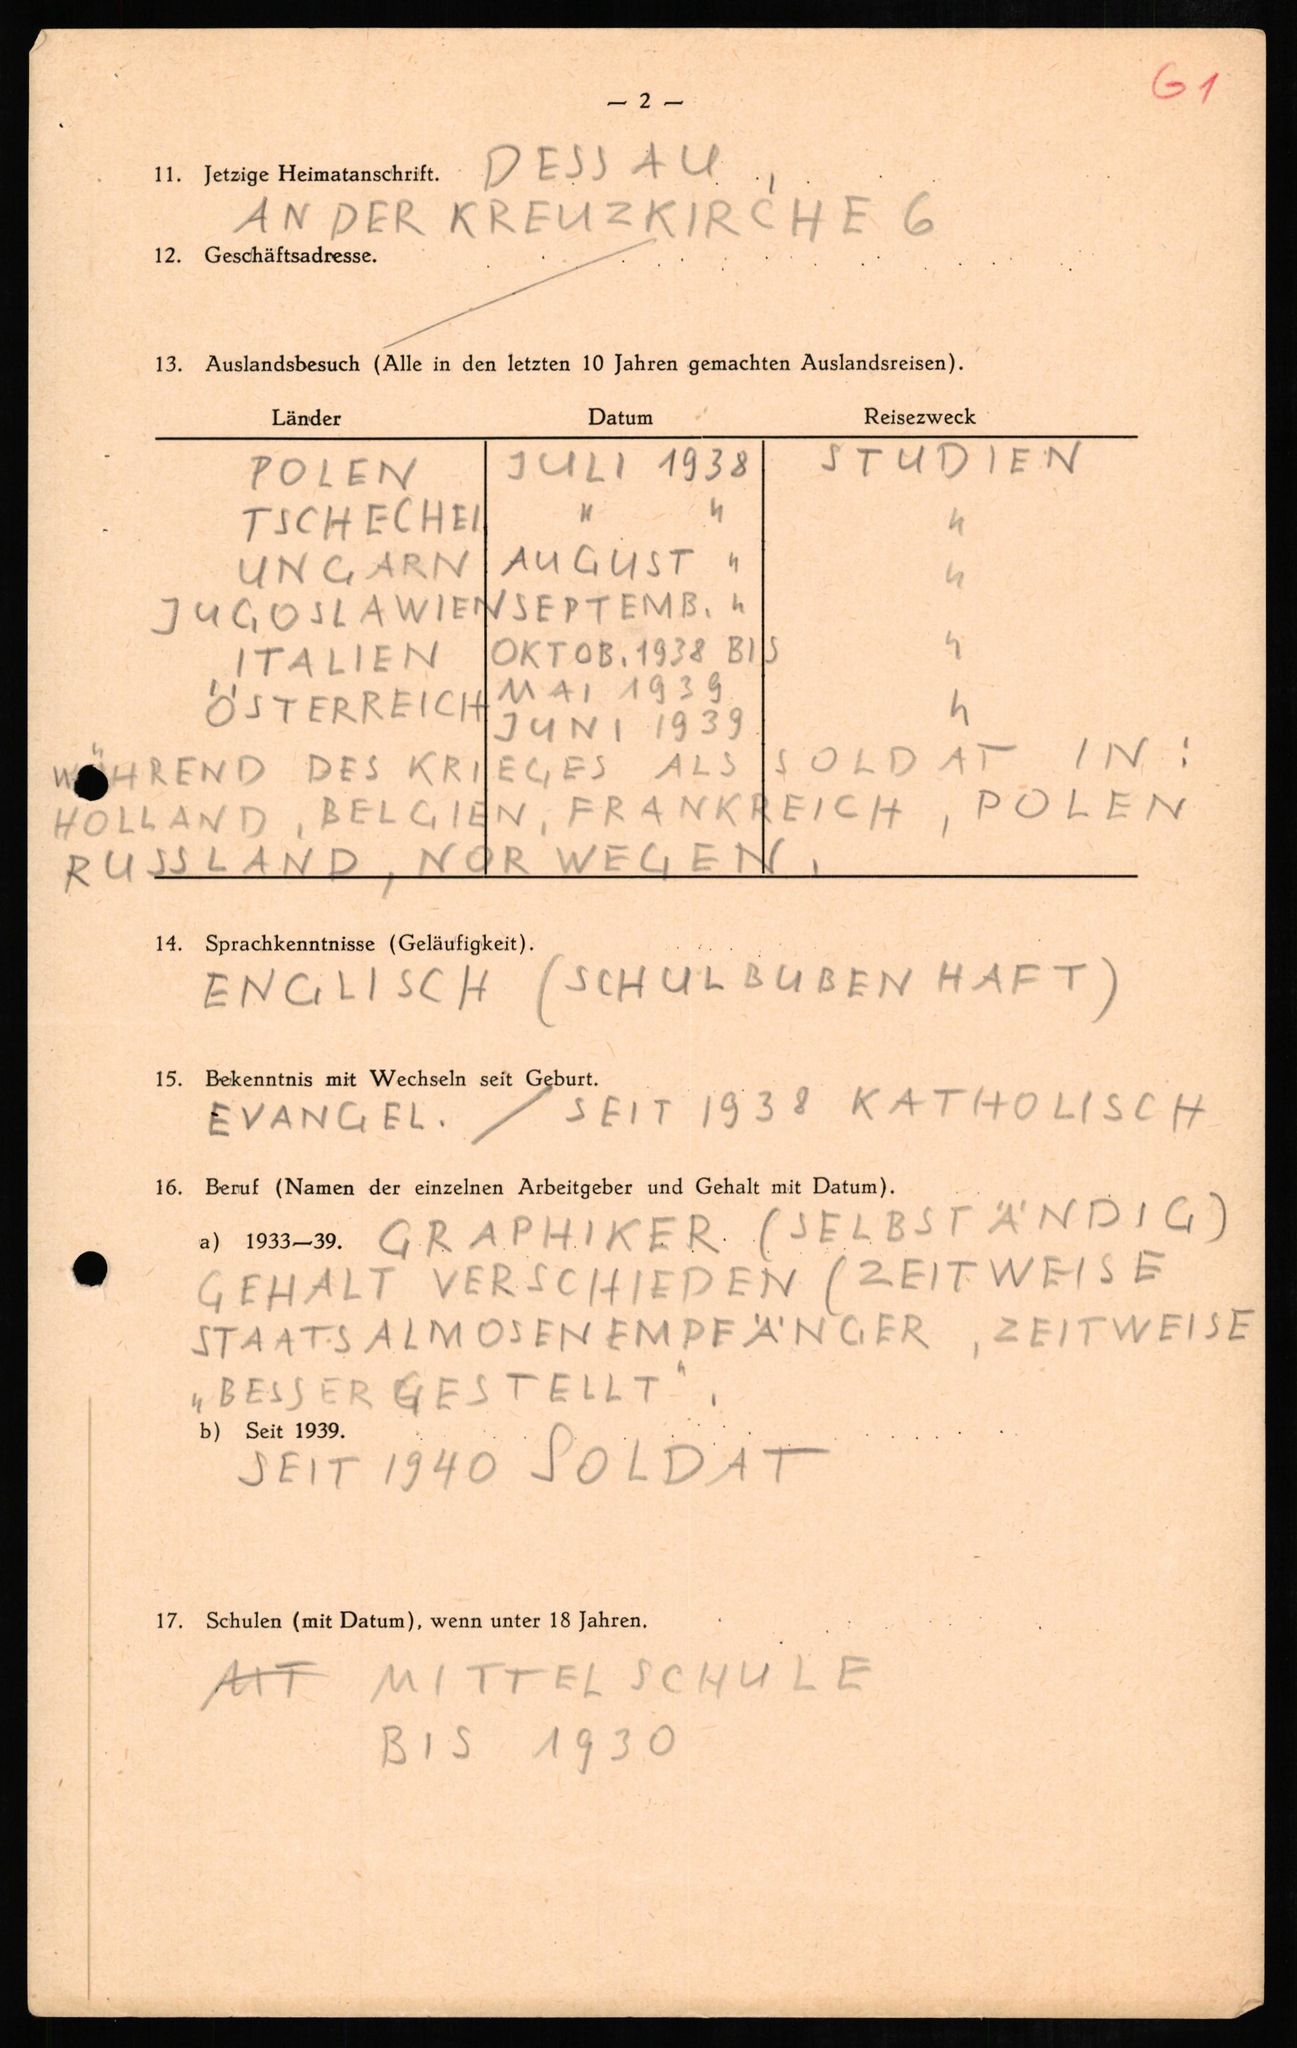 G1
— 2 —
11. Jetzige Heimatanschrift. DESSAU,
AN DER KREUZKIRCHE 6
12. Geschäftsadresse.
13. Auslandsbesuch (Alle in den letzten 10 Jahren gemachten Auslandsreisen).
Länder Datum Reisezweck
POLEN JULI 1938 STUDIEN
TSCHECHEI " " "
UNGARN AUGUST " "
JUGOSLAWIEN SEPTEMB. "
ITALIEN OKTOB. 1938 BIS "
MAI 1939
ÖSTERREICH JUNI 1939 "
WÄHREND DES KRIEGES ALS SOLDAT IN:
HOLLAND, BELGIEN, FRANKREICH, POLEN
RUSSLAND, NORWEGEN.
14. Sprachkenntnisse (Geläufigkeit).
ENGLISCH (SCHULBUBENHAFT)
15. Bekenntnis mit Wechseln seit Geburt.
EVANGEL. / SEIT 1938 KATHOLISCH
16. Beruf (Namen der einzelnen Arbeitgeber und Gehalt mit Datum).
a) 1933—39. GRAPHIKER (SELBSTÄNDIG)
GEHALT VERSCHIEDEN (ZEITWEISE
STAATSALMOSENEMPFÄNGER, ZEITWEISE
„BESSERGESTELLT".
b) Seit 1939.
SEIT 1940 SOLDAT
17. Schulen (mit Datum), wenn unter 18 Jahren.
MITTELSCHULE
BIS 1930